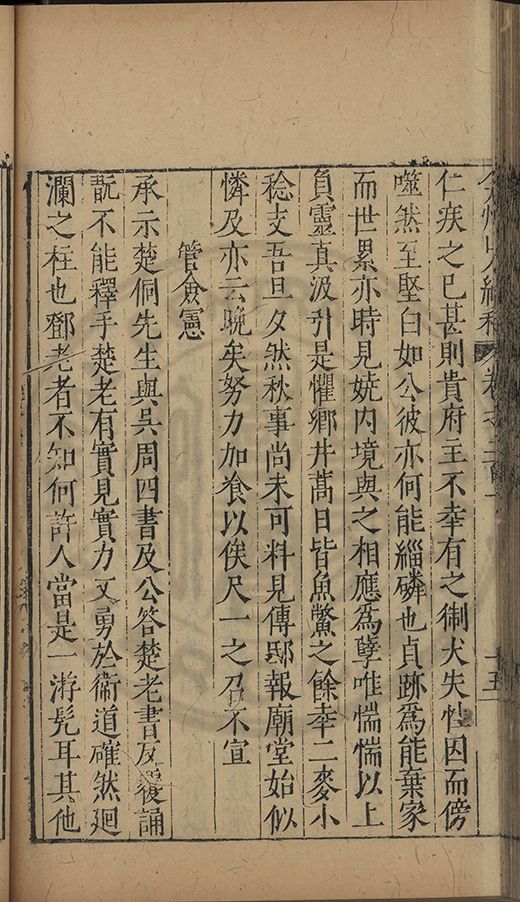 仁疾之已甚則貴府主不幸有之猘犬失性因而傍
噬然至堅白如公彼亦何能緇磷也貞跡爲能棄家
而世累亦時見嬈内境與之相應爲孽唯惴惴以上
負靈真汲引是懼鄉井萬目皆魚鱉之餘幸二麥小
稔支吾旦夕然秋事尚未可料見傳邸報廟堂始似
憐及亦云晚矣努力加飡以俟尺一之召不宣
管僉憲
承示楚侗先生與吳周四書及公答楚老書反復誦
翫不能釋手楚老有實見實力又勇於衛道確然廻
瀾之柱也鄧老者不知何許人當是一游髡耳其他